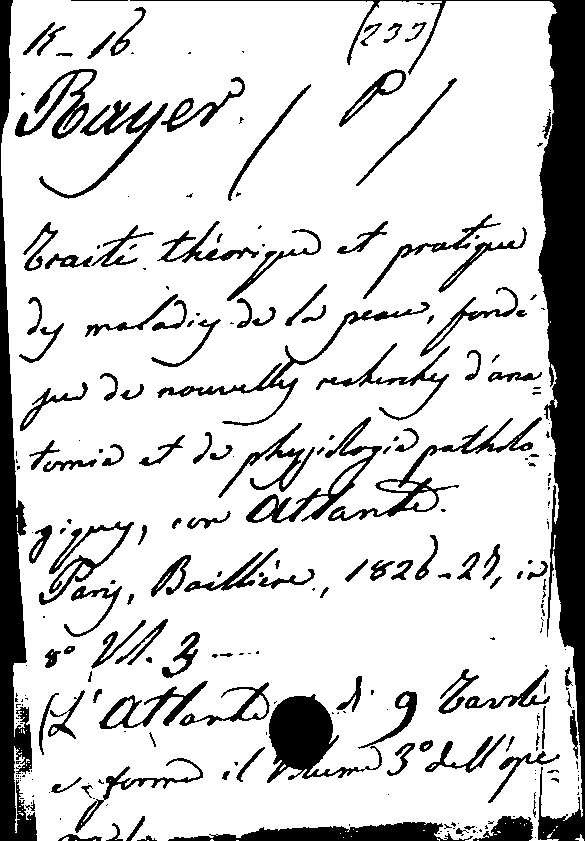 K-16 (233)
Rayer (P)
Traité théorique et pratique
des maladies de la peau, fondé
sur de nouvelles recherches d'ana=
tomie et de physiologie patholo=
giques, con Atlante.
Paris, Baillière, 1826-27, in
8° Vol. 3 ----
(L'Atlante di 9 Tavole
e forma il Volume 3° dell'ope=